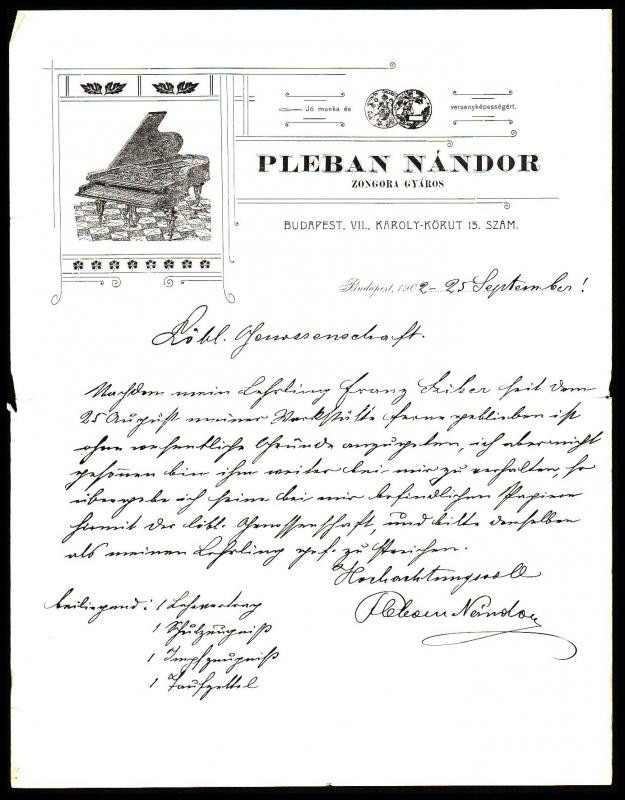 Jó munka és
versenyképességért.
PLEBAN NÁNDOR
ZONGORA GYÁROS
BUDAPEST, VII., KAROLY-KÖRUT 15. SZÁM.
Budapest, 1902 - 25 September!
Löbl. Genossenschaft.
Nachdem mein Lehrling Franz seit dem
25 August meiner Werkstätte ferne geblieben ist
ohne wesentliche Gründe anzugeben, ich aber nicht
gesonnen bin ihm weiter bei mir zu verhalten, so
übergebe ich seine bei mir befindlichen Papiere
hiermit der löbl. Genossenschaft, und bitte denselben
als meinen Lehrling gef. zu streichen.
Hochachtungsvoll
Pleban Nándor
beiliegend: 1 Lehrvertrag
1 Schulzeugniß
1 Impfzeugniß
1 Taufzettel